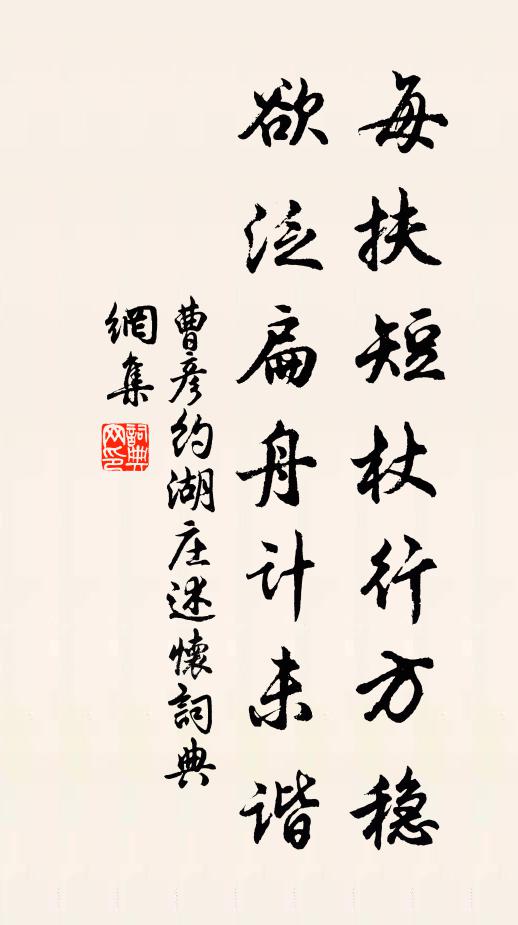 每扶短杖行方穏
欲泛扁舟计未谐
曹彦约湖庄述懷詞典
網集
詞典
网印